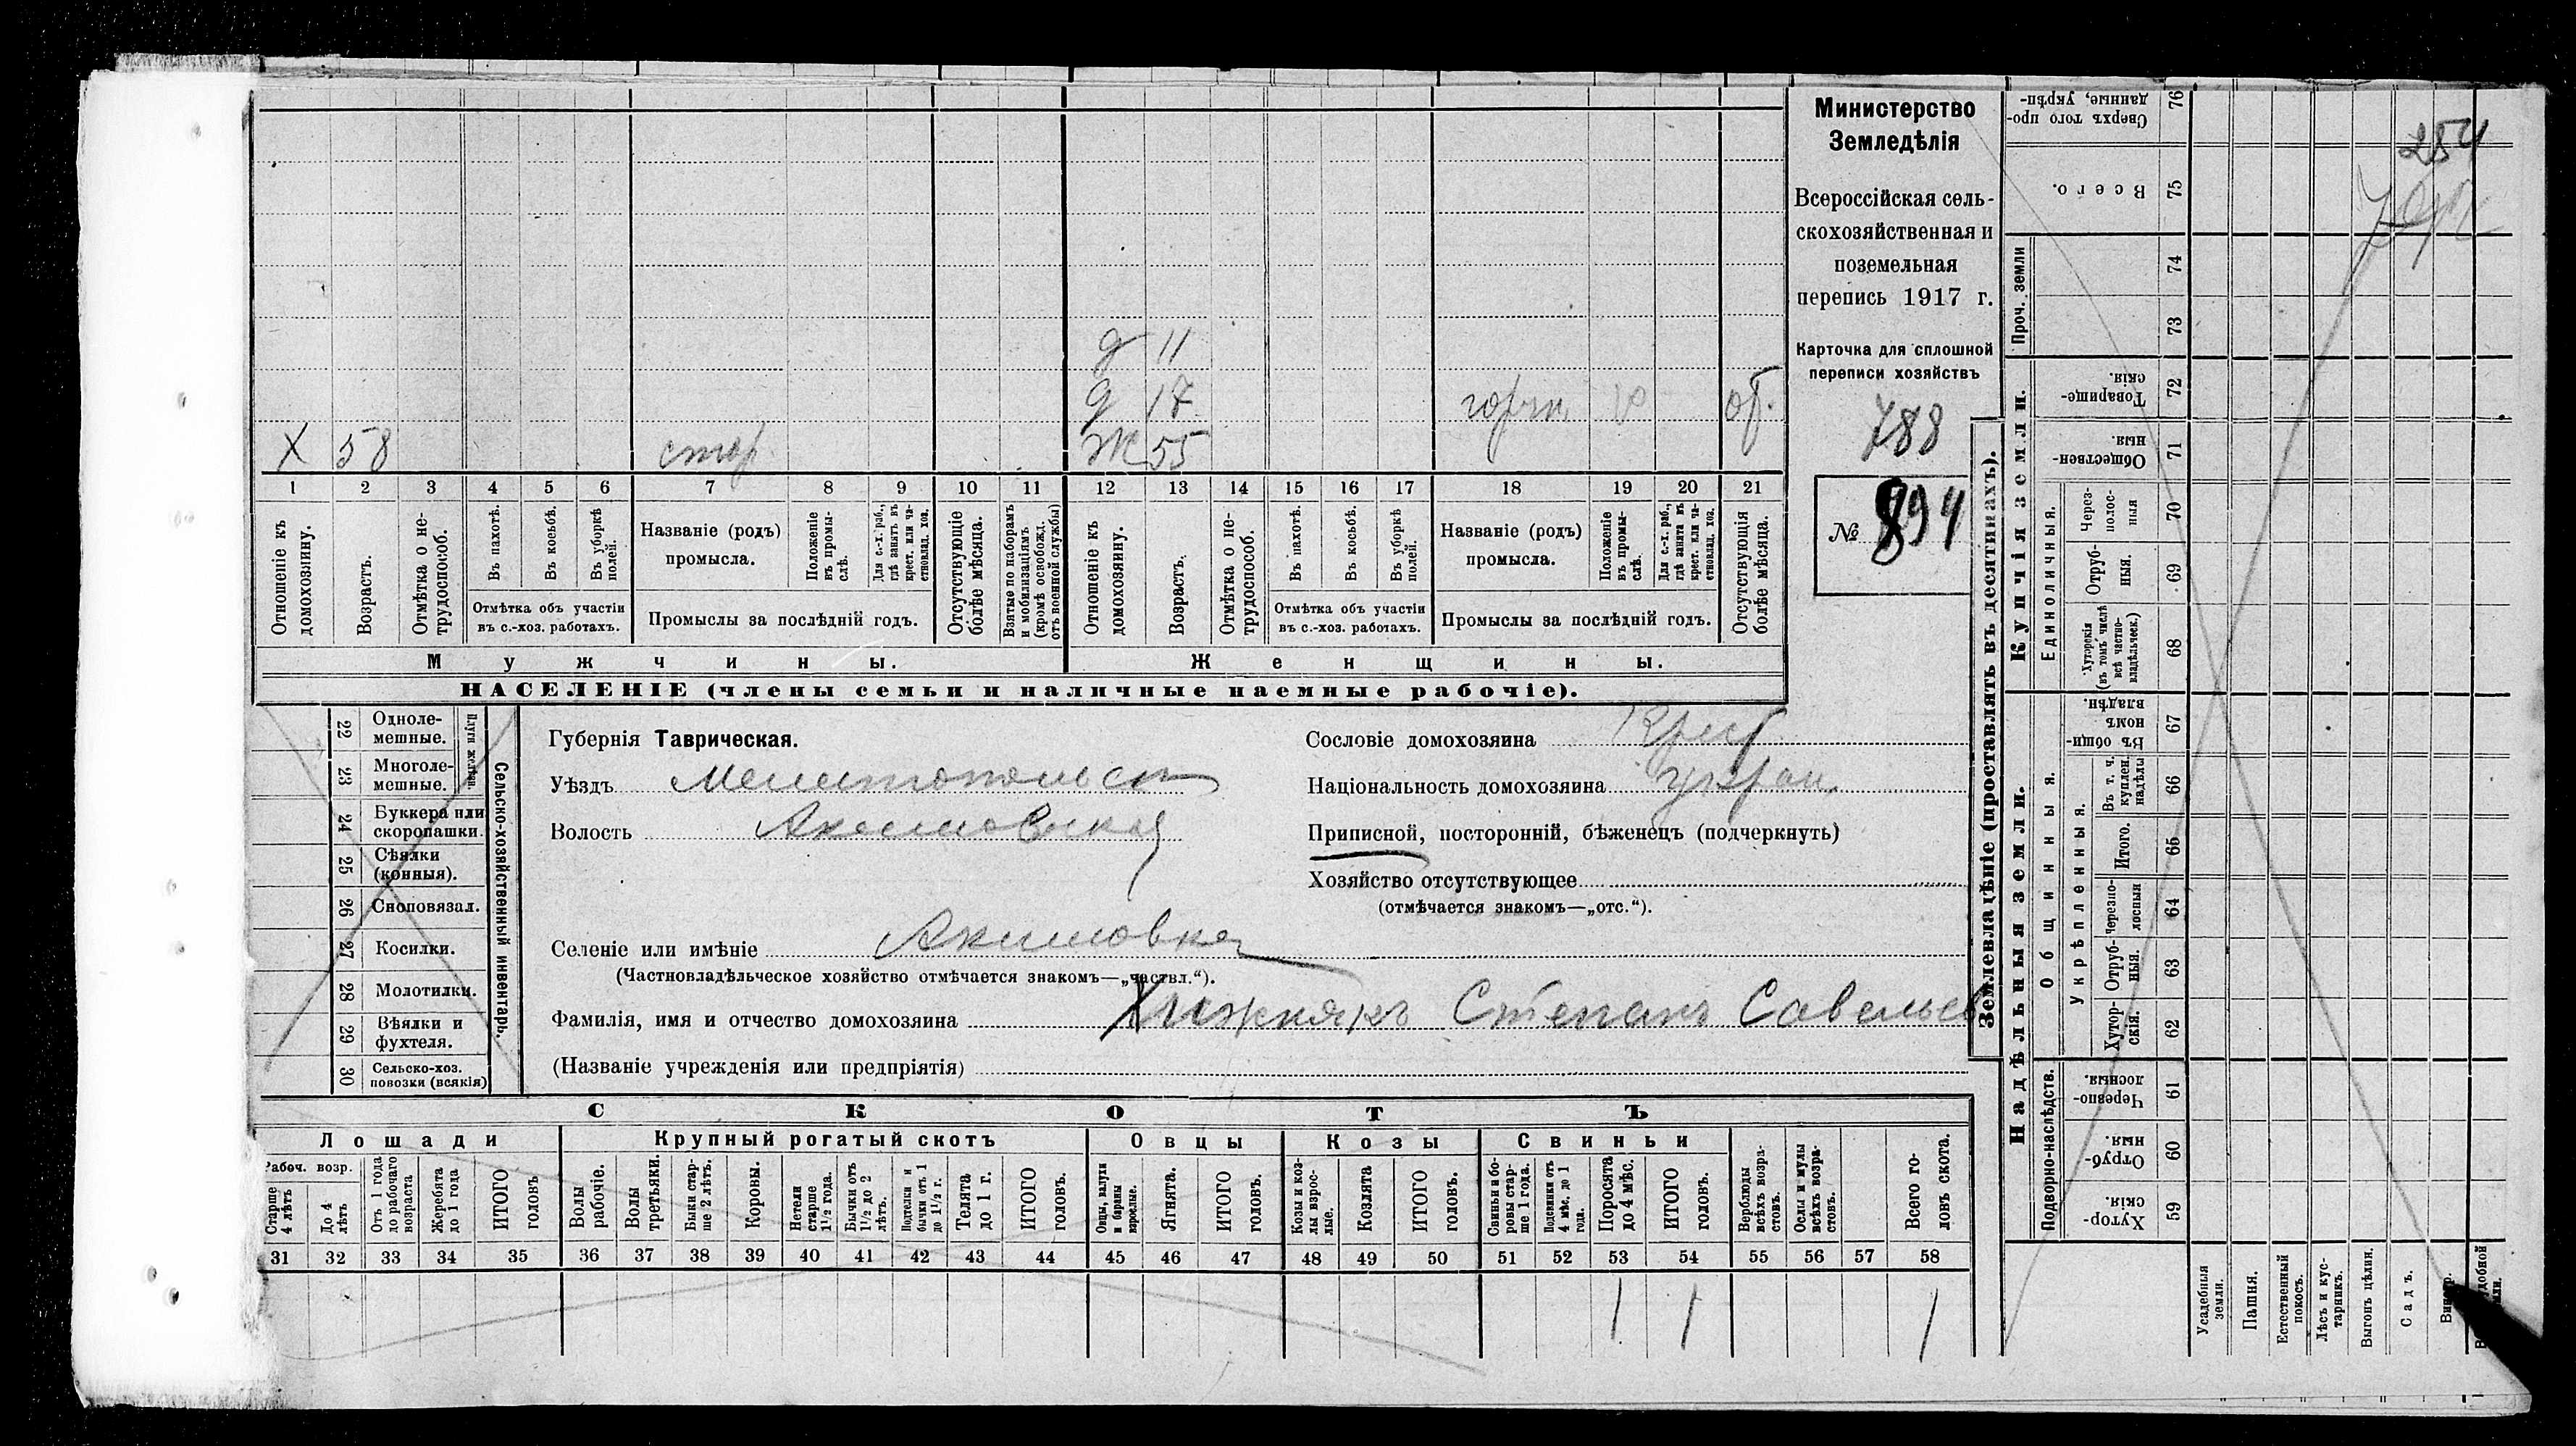 254
Министерство
Земледѣлія
Всероссійская сель-
скохозяйственная и
поземельная
перепись 1917 г.
Карточка для сплошной
переписи хозяйствъ
788
№ 894
д 11
д 17 горнич. об.
Х 58 стор. Ж 55
1 2 3 4 5 6 7 8 9 10 11 12 13 14 15 16 17 18 19 20 21
Отношеніе къ домохозяину.
Возрастъ.
Отмѣтка о не-трудоспособ.
Въ пахотѣ.
Въ косьбѣ.
Въ уборкѣ полей.
Отмѣтка объ участіи въ с.-хоз. работахъ.
Названіе (родъ) промысла.
Положеніе въ промы-слѣ.
Для с.-х. раб., гдѣ занятъ въ крест. или ча-стновлад. хоз.
Промыслы за послѣдній годъ.
Отсутствующіе болѣе мѣсяца.
Взятые по наборамъ и мобилизаціямъ (кромѣ освобожд. отъ военной службы)
Отношеніе къ домохозяину.
Возрастъ.
Отмѣтка о не-трудоспособ.
Въ пахотѣ.
Въ косьбѣ.
Въ уборкѣ полей.
Отмѣтка объ участіи въ с.-хоз. работахъ.
Названіе (родъ) промысла.
Положеніе въ промы-слѣ.
Для с.-х. раб., гдѣ занята въ крест. или ча-стновлад. хоз.
Промыслы за послѣдній годъ.
Отсутствующія болѣе мѣсяца.
Мужчины.
Женщины.
НАСЕЛЕНІЕ (члены семьи и наличные наемные рабочіе).
22 Одноле-мешные.
23 Многоле-мешные.
24 Буккера или скоропашки.
25 Сѣялки (конныя).
26 Сноповязал.
27 Косилки.
28 Молотилки.
29 Вѣялки и фухтеля.
30 Сельско-хоз. повозки (всякія)
Сельско-хозяйственный инвентарь.
Губернія Таврическая.
Уѣздъ Мелитопольск
Волость Акимовская
Селеніе или имѣніе Акимовка
(Частновладѣльческое хозяйство отмѣчается знакомъ—„частвл.“).
Фамилія, имя и отчество домохозяина Хижнякъ Степанъ Савельев
(Названіе учрежденія или предпріятія)
Сословіе домохозяина Крест
Національность домохозяина украин.
Приписной, посторонній, бѣженецъ (подчеркнуть)
Хозяйство отсутствующее
(отмѣчается знакомъ—„отс.“).
СКОТЪ
Лошади
Крупный рогатый скотъ
Овцы
Козы
Свиньи
Рабоч. возр.
Старше 4 лѣтъ
До 4 лѣтъ
Отъ 1 года до рабочаго возраста
Жеребята до 1 года
ИТОГО головъ
Волы рабочіе.
Волы третьяки.
Быки стар-ше 2 лѣтъ.
Коровы.
Нетели старше 1½ года.
Бычки отъ 1½ до 2 лѣтъ.
Подтелки и бычки отъ 1 до 1½ г.
Телята до 1 г.
ИТОГО головъ.
Овцы, валухи и бараны взрослые.
Ягнята.
ИТОГО головъ.
Козы и коз-лы взрос-лые.
Козлята
ИТОГО головъ.
Свиньи и бо-ровы стар-ше 1 года.
Подсвинки отъ 4 мѣс. до 1 года.
Поросята до 4 мѣс.
ИТОГО головъ.
Верблюды всѣхъ возра-стовъ.
Ослы и мулы всѣхъ возра-стовъ.
Всего го-ловъ скота.
31 32 33 34 35 36 37 38 39 40 41 42 43 44 45 46 47 48 49 50 51 52 53 54 55 56 57 58
1 1 1
Землевладѣніе (проставлять въ десятинахъ).
Надѣльныя земли.
Купчія земли.
Проч. земли
Подворно-наслѣдств.
Общинныя.
Укрѣпленныя.
Единоличныя.
76 Сверхъ того про-данные, укрѣп-
75 Всего.
74
73
72 Товарище-скія.
71 Обществен-ныя.
70 Через-полос-ныя
69 Отруб-ныя.
68 Хуторскія (въ томъ числѣ всѣ частно-владѣльческ.)
67 Въ общин-номъ владѣн.
66 Въ т. ч. куплен. надѣлы
65 Итого.
64 Черезпо-лосныя
63 Отруб-ныя.
62 Хутор-скія.
61 Черезпо-лосныя.
60 Отруб-ныя.
59 Хутор-скія.
Усадебныя земли.
Пашня.
Естественный покосъ.
Лѣсъ и кус-тарникъ.
Выгонъ цѣлин.
Садъ.